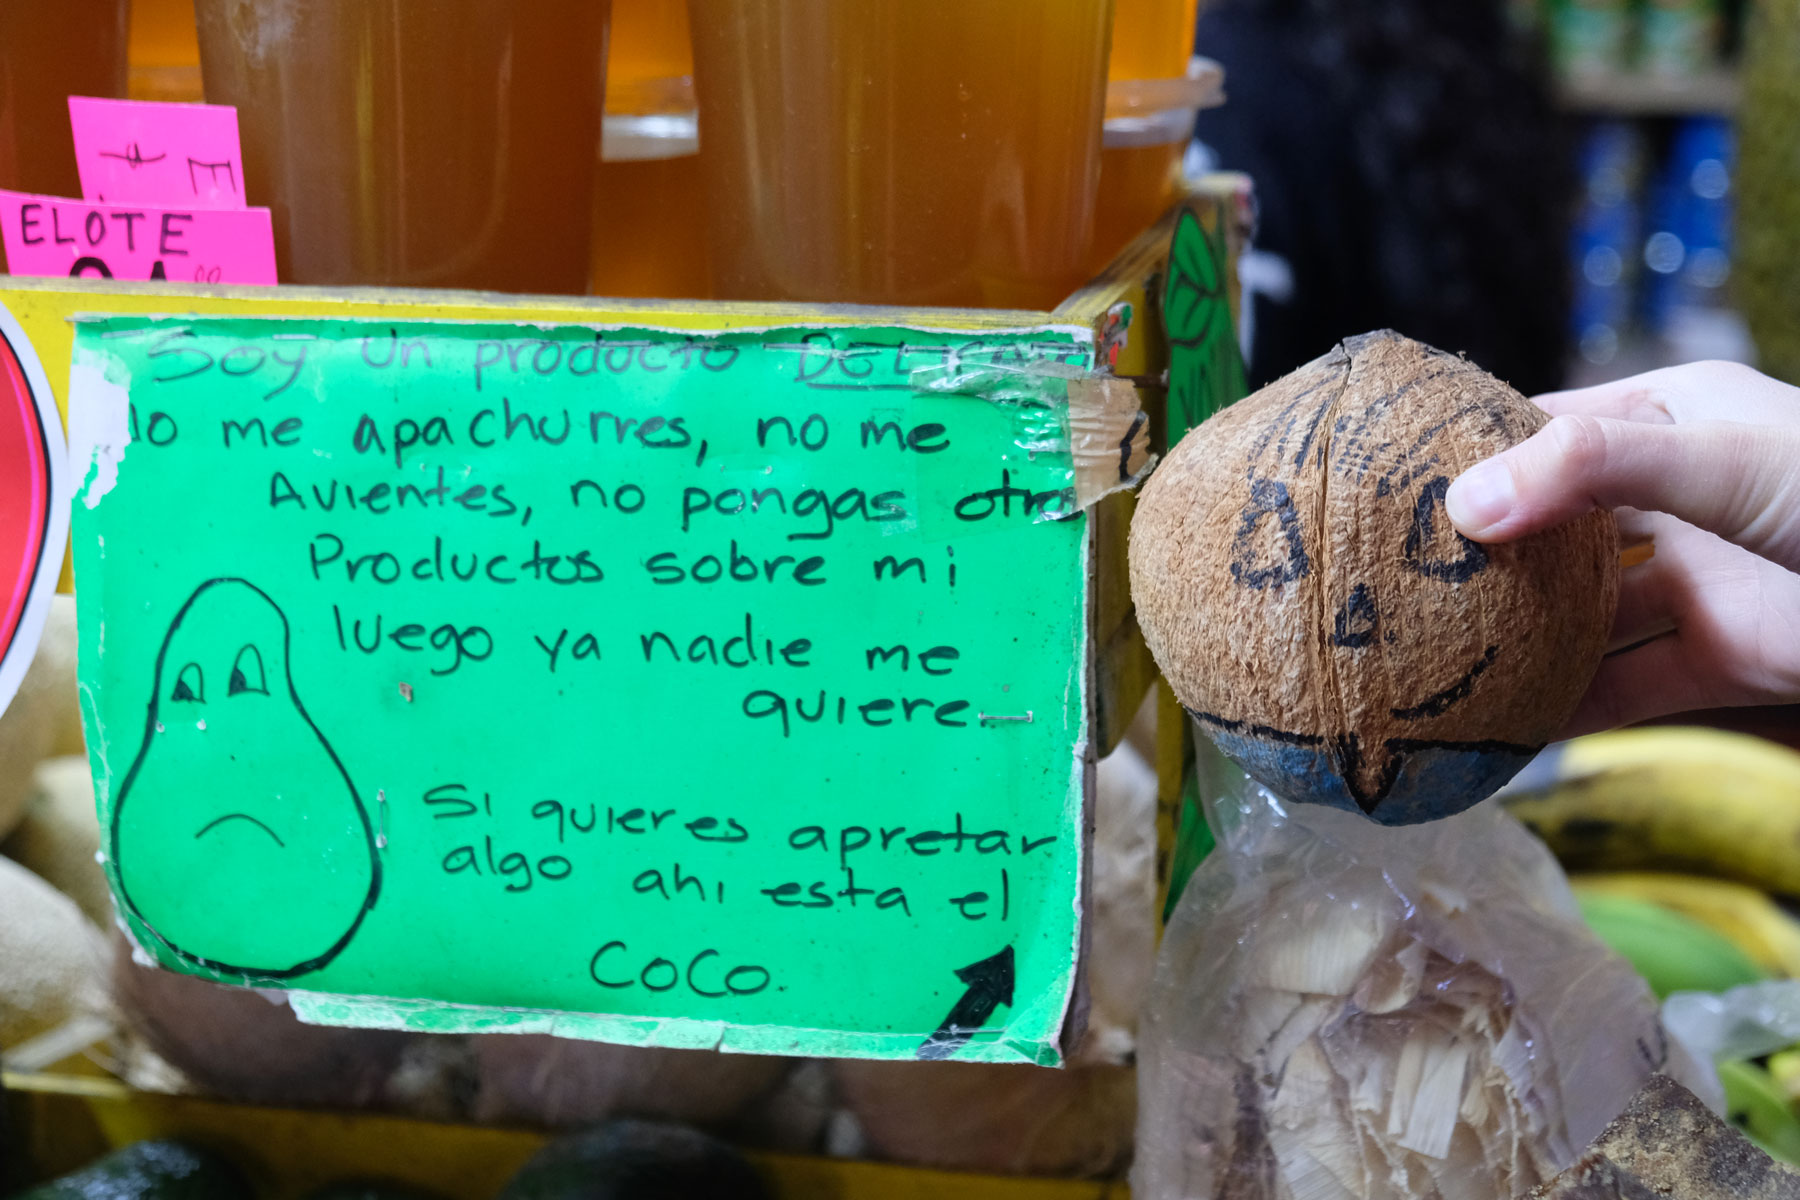 ELOTE
Soy un producto
me apachurres, no me
Avientes, no pongas otro
Productos sobre mi
luego ya nadie me
quiere.
Si quieres apretar
algo ahi esta el
CoCo.